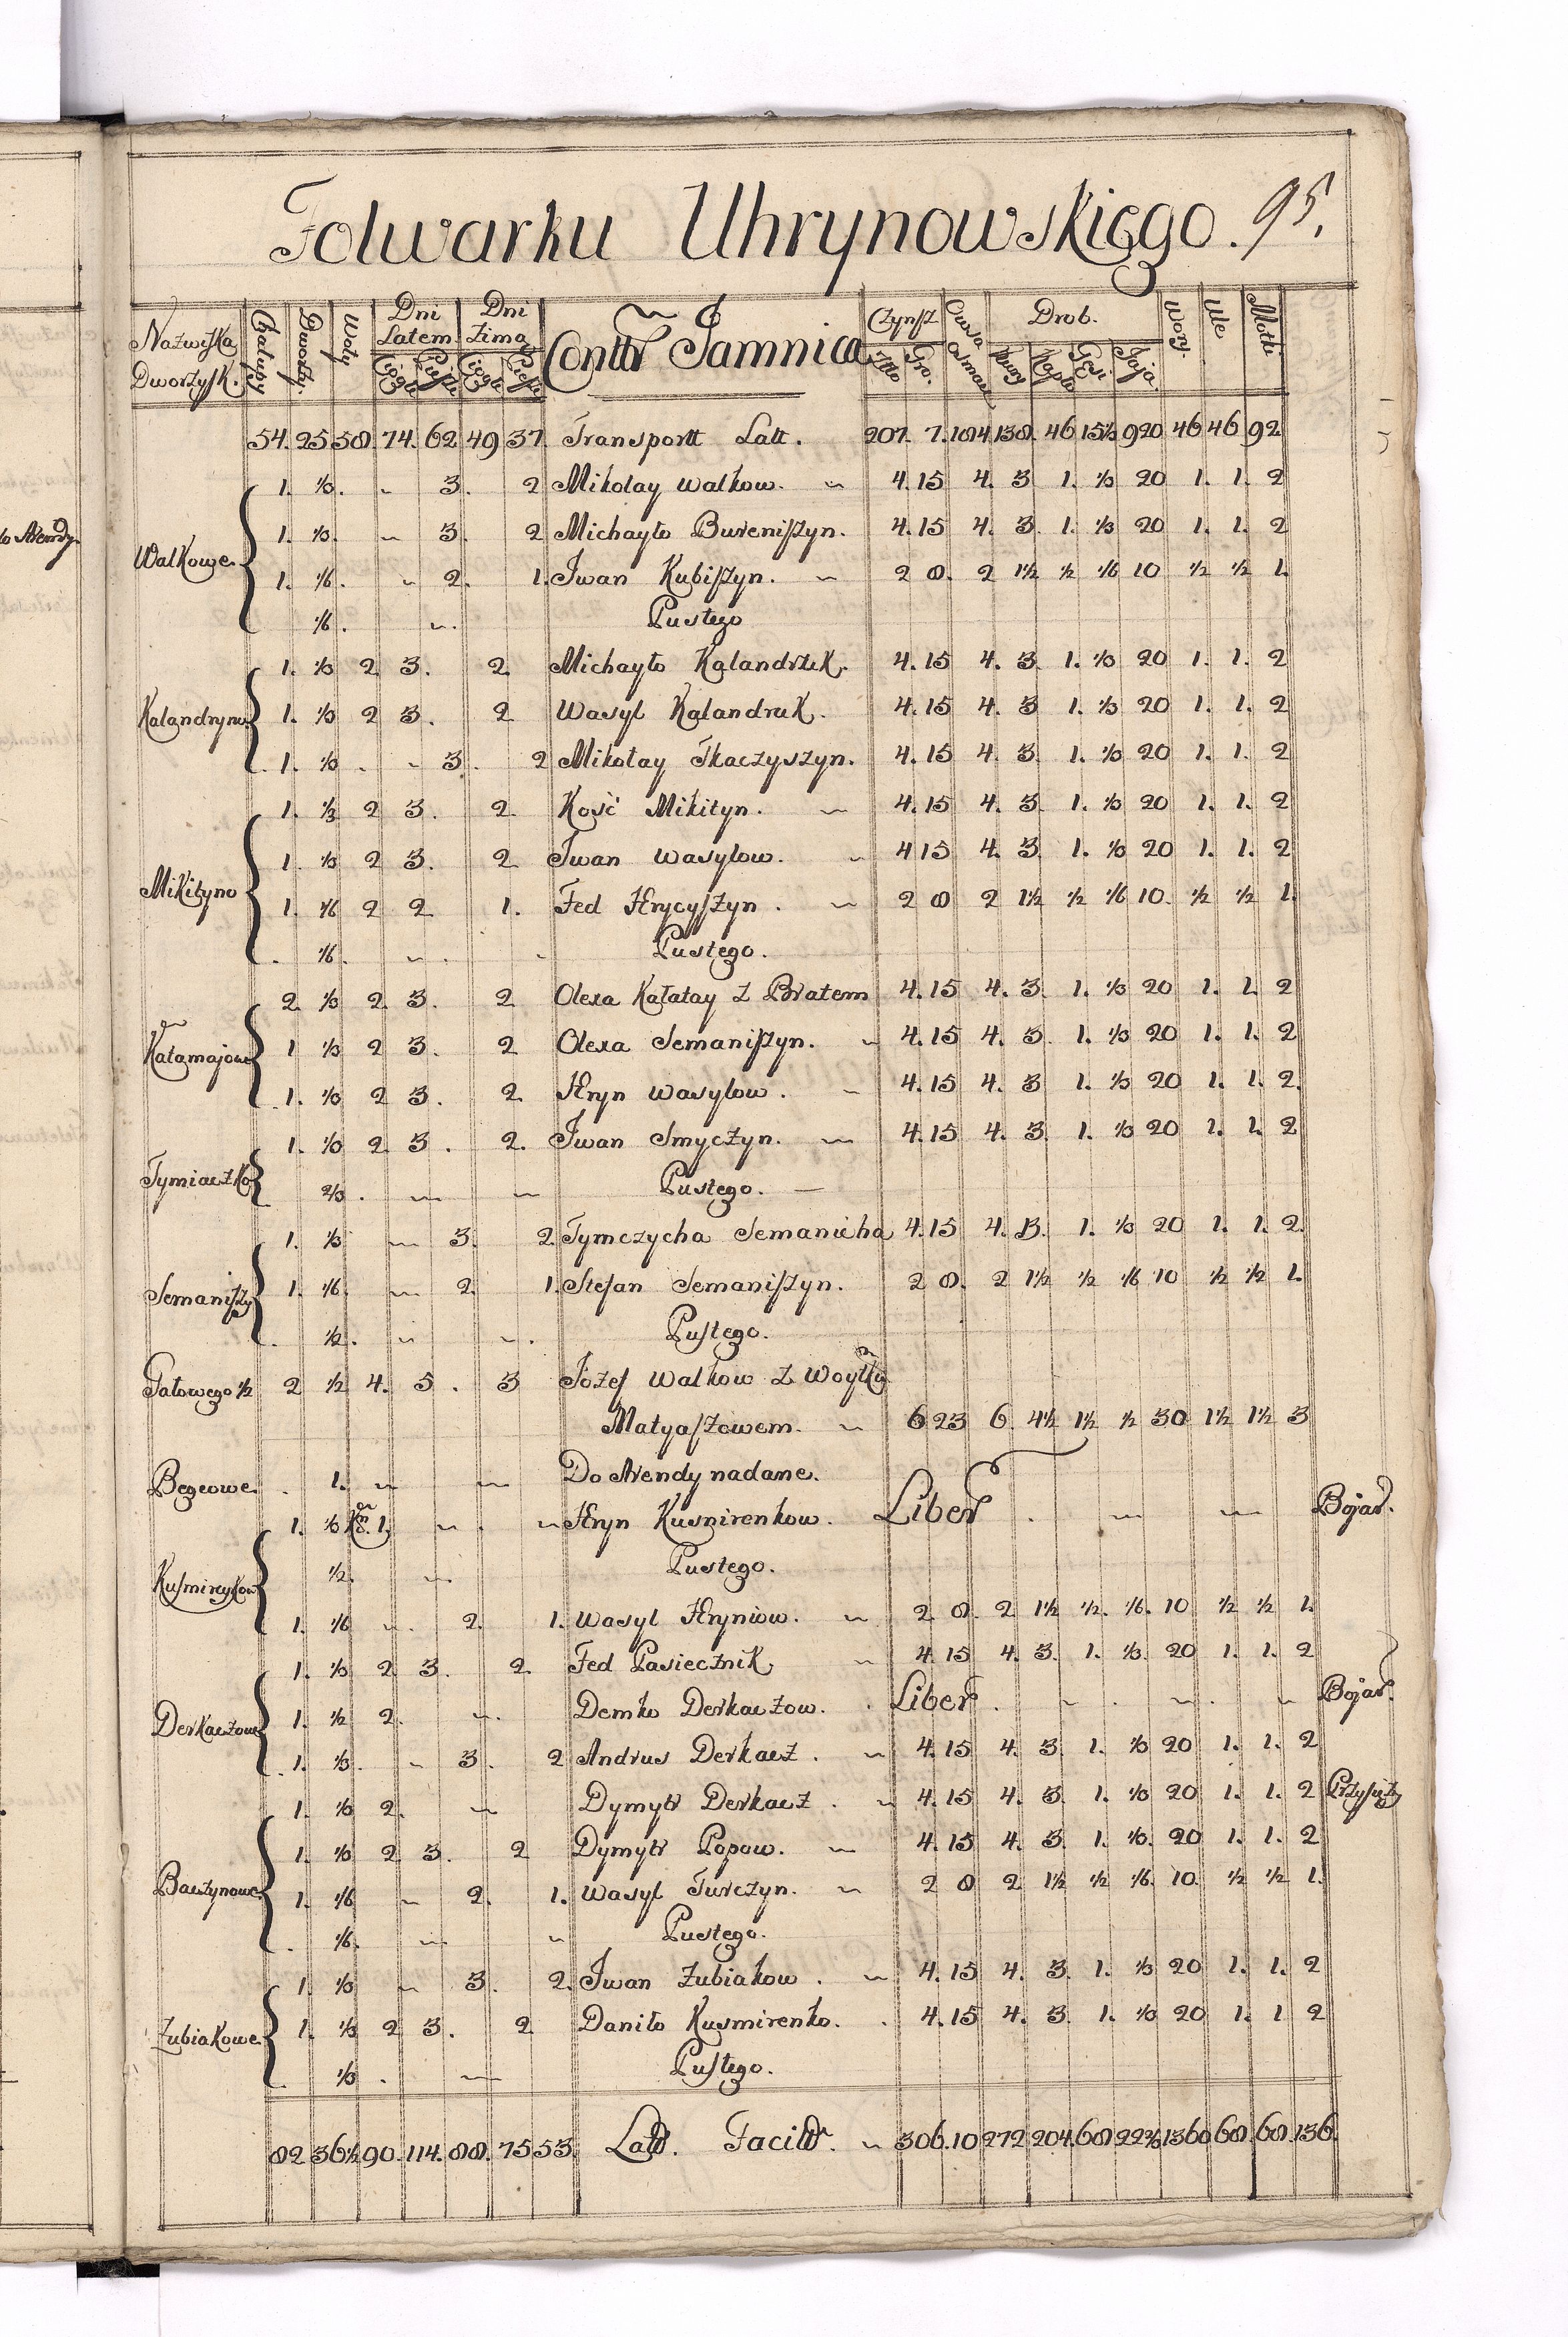 Folwarku Uhrynowskiego. 95.
Nazwiska Dworzysk. Chałupy Dworzys. Woły Dni Latem Ciągłe Piesze Dni Zimą Ciągłe Piesze Contt Jamnica Czynsz Złto Gro. Owsa Osmac Drob. Kury Kapło Gęsi Jaja. Wory. Ule Motki
54. 25 58. 74. 62 49 37. Transportt Latt. 207. 7. 184 138. 46 15⅓ 920 46 46 92
Walkowe.
1. ⅓. 3. 2 Mikołay Walkow. 4. 15 4. 3 1. ⅓ 20 1. 1. 2
1. ⅓. 3. 2 Michayło Bureniszyn. 4. 15 4. 3 1. ⅓ 20 1. 1. 2
1. ⅙. 2. 1. Jwan Kubiszyn. 2 8. 2 1½ ½ ⅙ 10 ½ ½ 1.
⅙. Pustego
Kalandryno
1. ⅓ 2 3. 2 Michayło Kalandruk. 4. 15 4. 3. 1. ⅓ 20 1. 1. 2
1. ⅓ 2 3. 2 Wasyl Kalandruk. 4. 15 4. 3 1. ⅓ 20 1. 1. 2
1. ⅓. 3. 2 Mikołay Tkaczyszyn. 4. 15 4. 3. 1. ⅓ 20 1. 1. 2
Mikityno
1. ⅓ 2 3. 2. Kość Mikityn. 4. 15 4. 3. 1. ⅓ 20 1. 1. 2
1. ⅓ 2 3. 2 Jwan Wasylow. 4 15 4. 3. 1. ⅓ 20 1. 1. 2
1. ⅙ 2 2 1. Fed Hrycyszyn. 2 8 2 1½ ½ ⅙ 10. ½ ½ 1.
⅙. Pustego.
Kałamajowe
2. ⅓ 2. 3. 2 Olexa Kałatay z Bratem 4. 15 4. 3. 1. ⅓ 20 1. 1. 2
1 ⅓ 2 3. 2 Olexa Semaniszyn. 4. 15 4. 3. 1. ⅓ 20 1. 1. 2
1. ⅓ 2 3. 2. Hryn Wasylow. 4. 15 4. 3 1. ⅓ 20 1. 1. 2.
Tymiaczko
1. ⅓ 2 3. 2. Jwan Smyczyn. 4. 15 4. 3. 1. ⅓ 20 1. 1. 2
⅔. Pustego.
Semaniszy
1. ⅓ 3. 2 Tymczycha Semanicha 4. 15 4. 3. 1. ⅓ 20 1. 1. 2.
1. ⅙. 2. 1. Stefan Semaniszyn. 2 8. 2 1½ ½ ⅙ 10 ½ ½ 1.
½. Pustego.
Gałowego ½ 2 ½ 4. 5. 3 Jozef Walkow z Woytk
Matyaszowem. 6 23 6. 4½ 1½ ½ 30 1½ 1½ 3
Begeowe. 1. Do Arendy nadane.
1. ⅓ 1. Hryn Kusmirenkow. Liber Bojar.
½. Pustego.
1. ⅙ 2. 1. Wasyl Hryniow. 2 8. 2 1½ ½. ⅙. 10 ½ ½ 1.
Derkaczowe
1. ⅓ 2 3. 2. Fed Pasiecznik 4. 15 4. 3. 1. ⅓. 20 1. 1. 2
1. ½ 2. Demko Derkaczow. Liber. Bojar.
1. ⅓. 3. 2 Andrus Derkacz. 4. 15 4. 3 1. ⅓ 20 1. 1. 2
Baczynowe
1. ⅓ 2. Dymytr Derkacz. 4. 15 4. 3. 1. ⅓ 20 1. 1. 2
1. ⅓ 2 3. 2 Dymytr Popow. 4. 15 4. 3. 1. ⅓. 20 1. 1. 2
1. ⅙ 2. 1. Wasyl Turczyn. 2 8 2 1½ ½ ⅙. 10. ½ ½ 1.
⅙. Pustego.
Zubiakowe.
1. ⅓ 3. 2. Jwan Zubiakow. 4. 15 4. 3. 1. ⅓ 20 1. 1. 2
1. ⅓ 2 3. 2 Daniło Kusmirenko. 4. 15 4. 3. 1. ⅓ 20 1. 1 2
⅓. Pustego.
82 36½ 90. 114. 88. 75 53. Latt. Facitt. 306. 10 272 204. 68 22⅔ 1360 68. 68. 136.